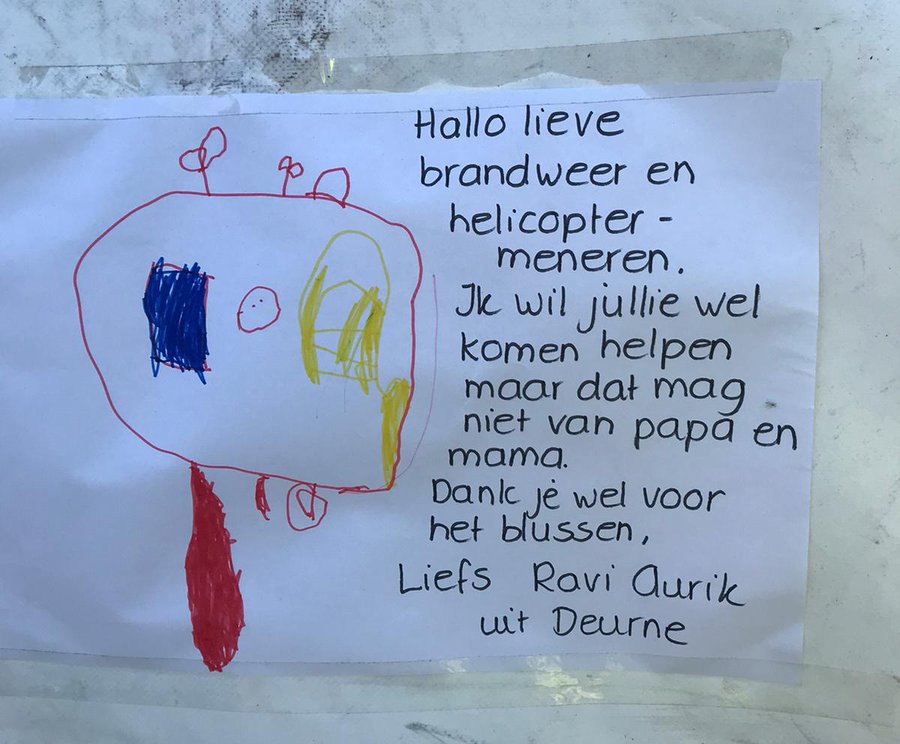 Hallo lieve
brandweer en
helicopter -
meneren.
Ik wil jullie wel
komen helpen
maar dat mag
niet van papa en
mama.
Dank je wel voor
het blussen,
Liefs Ravi Aurik
uit Deurne